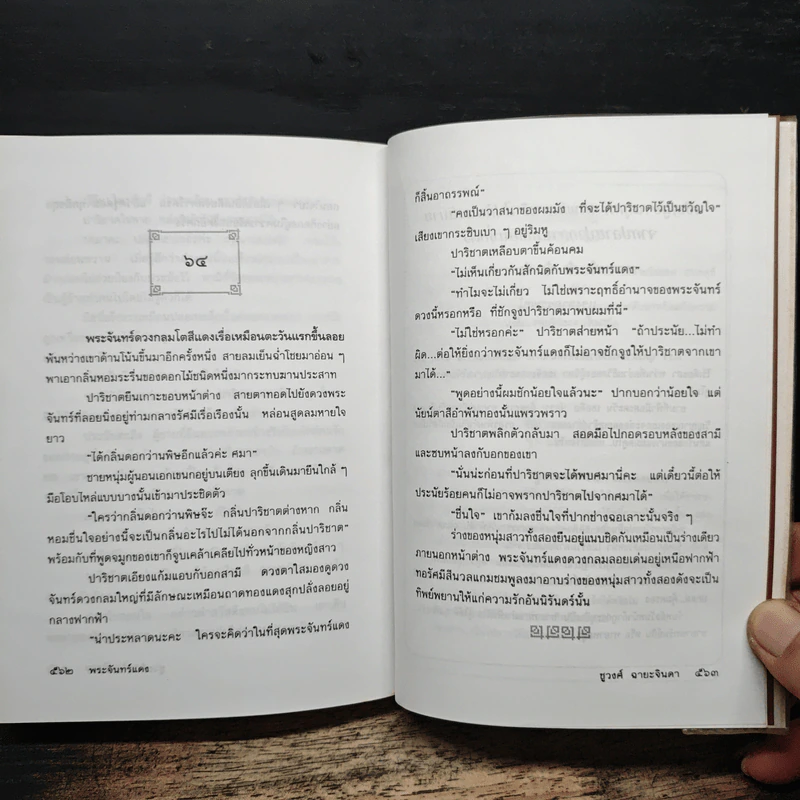 ๖๔
พระจันทร์ดวงกลมโตสีแดงเรื่อเหมือนตะวันแรกขึ้นลอย
พ้นหว่างเขาด้านโน้นขึ้นมาอีกครั้งหนึ่ง สายลมเย็นฉ่ำโชยมาอ่อน ๆ
พาเอากลิ่นหอมระรื่นของดอกไม้ชนิดหนึ่งมากระทบฆานประสาท
ปาริชาตยืนเกาะขอบหน้าต่าง สายตาทอดไปยังดวงพระ
จันทร์ที่ลอยนิ่งอยู่ท่ามกลางรัศมีเรื่อเรืองนั้น หล่อนสูดลมหายใจ
ยาว
"ได้กลิ่นดอกว่านพิษอีกแล้วค่ะ ศมา"
ชายหนุ่มผู้นอนเอกเขนกอยู่บนเตียง ลุกขึ้นเดินมายืนใกล้ ๆ
มือโอบไหล่แบบบางนั้นเข้ามาประชิดตัว
"ใครว่ากลิ่นดอกว่านพิษจ๊ะ กลิ่นปาริชาตต่างหาก กลิ่น
หอมชื่นใจอย่างนี้จะเป็นกลิ่นอะไรไปไม่ได้นอกจากกลิ่นปาริชาต"
พร้อมกับที่พูดจมูกของเขาก็จูบเคล้าเคลียไปทั่วหน้าของหญิงสาว
ปาริชาตเอียงแก้มแอบกับอกสามี ดวงตาใสมองดูดวง
จันทร์ดวงกลมใหญ่ที่มีลักษณะเหมือนถาดทองแดงสุกปลั่งลอยอยู่
กลางฟากฟ้า
"น่าประหลาดนะคะ ใครจะคิดว่าในที่สุดพระจันทร์แดง
๕๖๒ พระจันทร์แดง
ก็สิ้นอาถรรพณ์"
"คงเป็นวาสนาของผมมัง ที่จะได้ปาริชาตไว้เป็นขวัญใจ"
เสียงเขากระซิบเบา ๆ อยู่ริมหู
ปาริชาตเหลือบตาขึ้นค้อนคม
"ไม่เห็นเกี่ยวกันสักนิดกับพระจันทร์แดง"
"ทำไมจะไม่เกี่ยว ไม่ใช่เพราะฤทธิ์อำนาจของพระจันทร์
ดวงนี้หรอกหรือ ที่ชักจูงปาริชาตมาพบผมที่นี่"
"ไม่ใช่หรอกค่ะ" ปาริชาตส่ายหน้า "ถ้าประนัย...ไม่ทำ
ผิด...ต่อให้ยิ่งกว่าพระจันทร์แดงก็ไม่อาจชักจูงให้ปาริชาตจากเขา
มาได้..."
"พูดอย่างนี้ผมชักน้อยใจแล้วนะ" ปากบอกว่าน้อยใจ แต่
นัยน์ตาสีอำพันทองนั้นแพรวพราว
ปาริชาตพลิกตัวกลับมา สอดมือไปกอดรอบหลังของสามี
และซบหน้าลงกับอกของเขา
"นั่นน่ะก่อนที่ปาริชาตจะได้พบศมานี่คะ แต่เดี๋ยวนี้ต่อให้
ประนัยร้อยคนก็ไม่อาจพรากปาริชาตไปจากศมาได้"
"ชื่นใจ" เขาก้มลงชื่นใจที่ปากช่างฉอเลาะนั้นจริง ๆ
ร่างของหนุ่มสาวทั้งสองยืนอยู่แนบชิดกันเหมือนเป็นร่างเดียว
ภายนอกหน้าต่าง พระจันทร์แดงดวงกลมลอยเด่นอยู่เหนือฟากฟ้า
ทอรัศมีสีนวลแกมชมพูลงมาอาบร่างของหนุ่มสาวทั้งสองดังจะเป็น
ทิพย์พยานให้แก่ความรักอันนิรันดร์นั้น
ชูวงศ์ ฉายะจินดา ๕๖๓